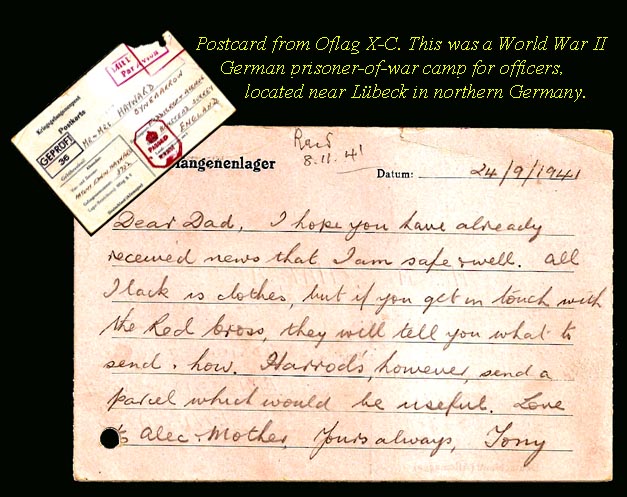 Postcard from Oflag X-C. This was a World War II
German prisoner-of-war camp for officers,
located near Lübeck in northern Germany.
Mit Luftpost
Par Avion
Kriegsgefangenenpost
Postkarte
MR + MRS HAYWARD
ENGLAND
GEPRÜFT
36
PASSED
Recd
8.11.41
angenenlager
Datum: 24/9/1941
Dear Dad, I hope you have already
received news that I am safe & well. All
I lack is clothes, but if you get in touch with
the Red Cross, they will tell you what to
send & how. Harrod's, however, send a
parcel which would be useful. Love
to Alec & Mother, Yours always, Tony